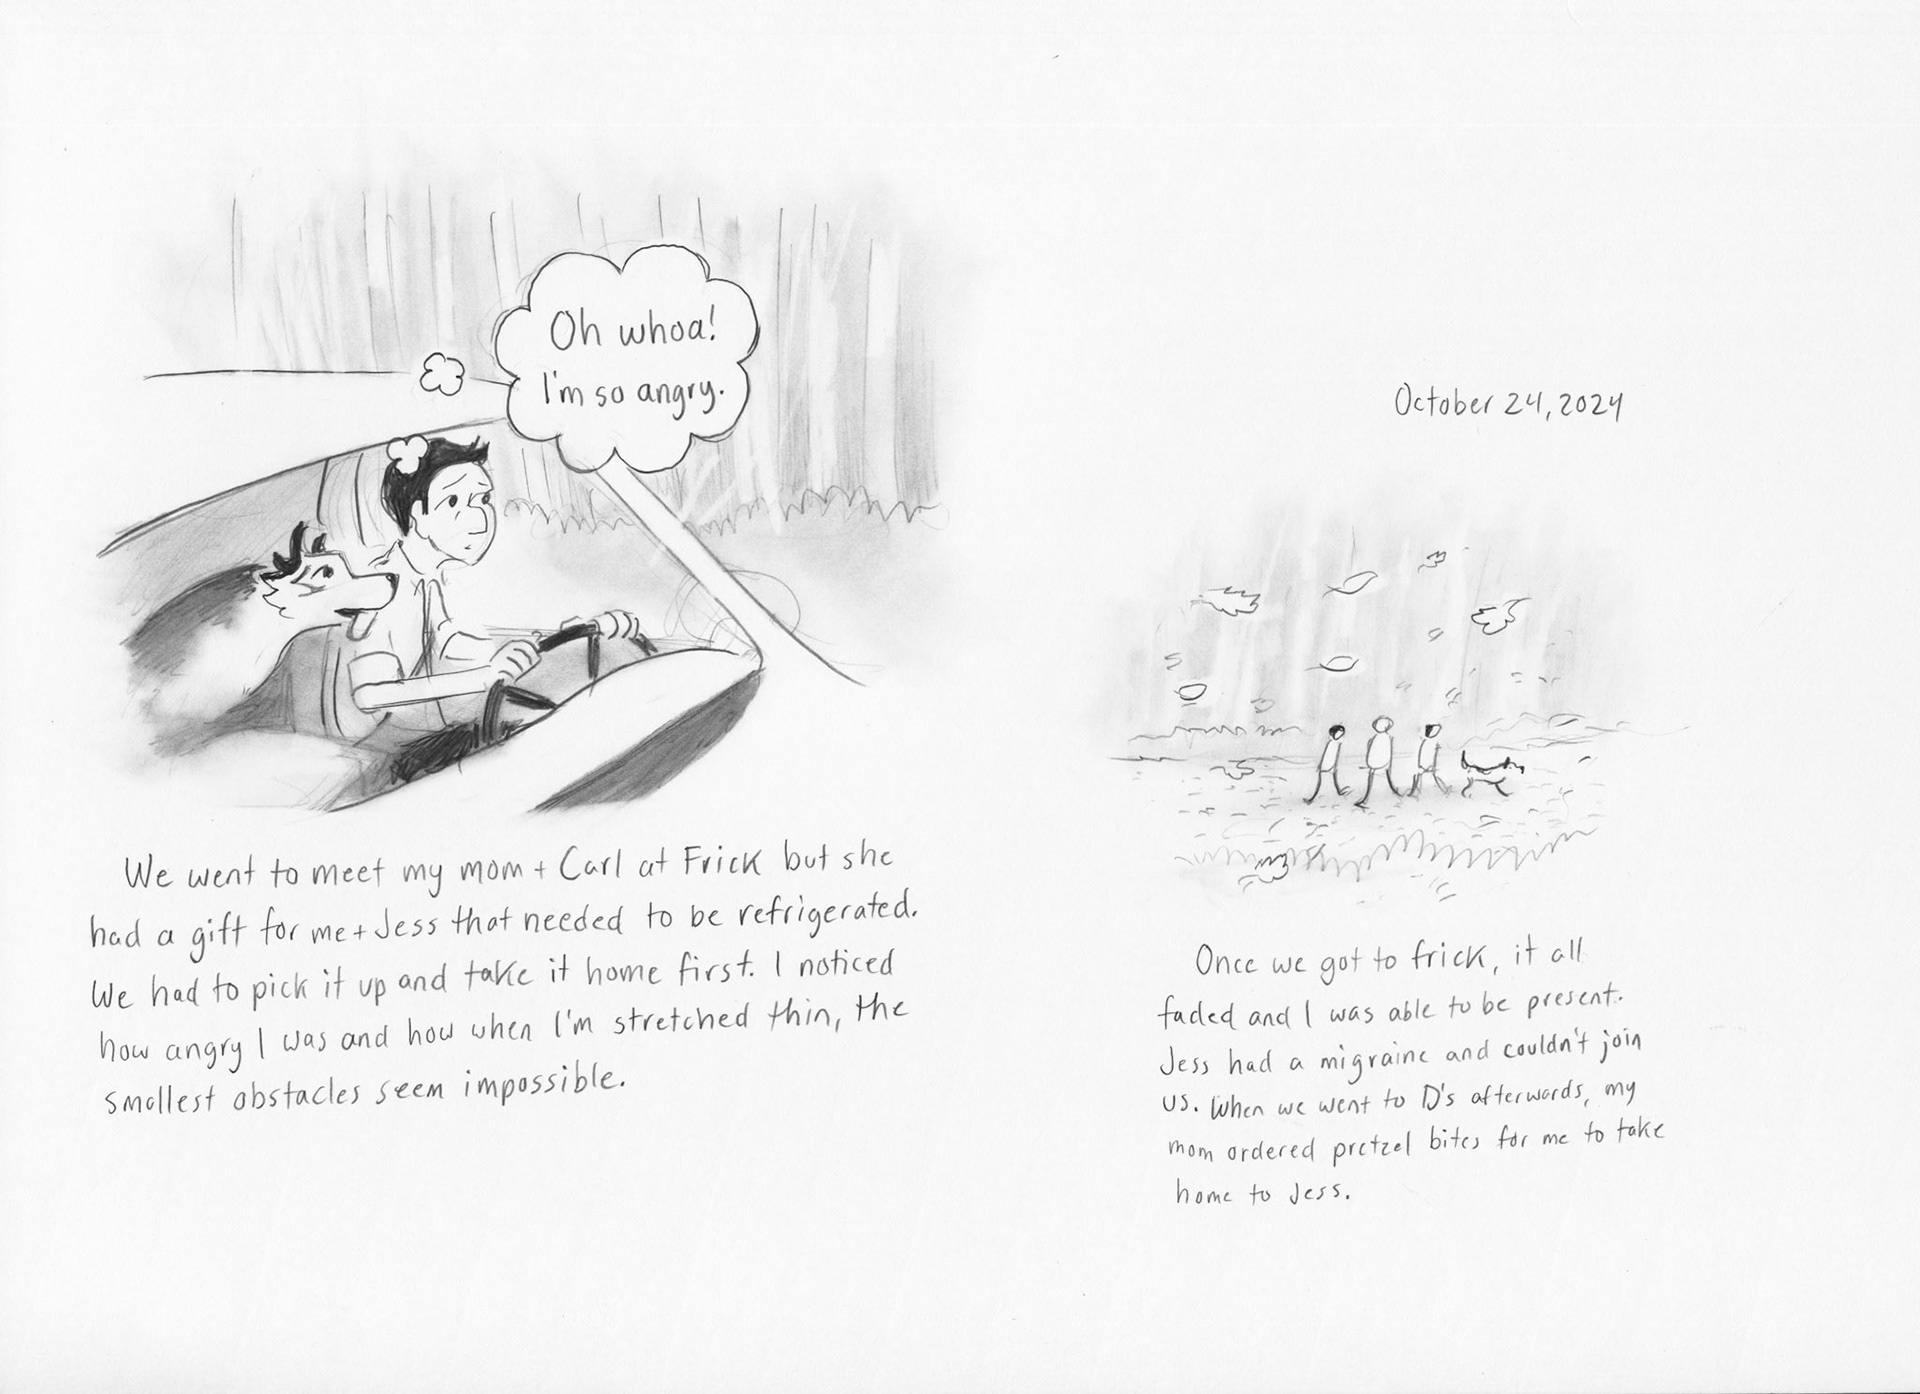 Oh whoa!
I'm so angry.
We went to meet my mom + Carl at Frick but she
had a gift for me + Jess that needed to be refrigerated.
We had to pick it up and take it home first. I noticed
how angry I was and how when I'm stretched thin, the
smallest obstacles seem impossible.
October 24, 2024
Once we got to frick, it all
faded and I was able to be present.
Jess had a migraine and couldn't join
us. When we went to D's afterwards, my
mom ordered pretzel bites for me to take
home to Jess.